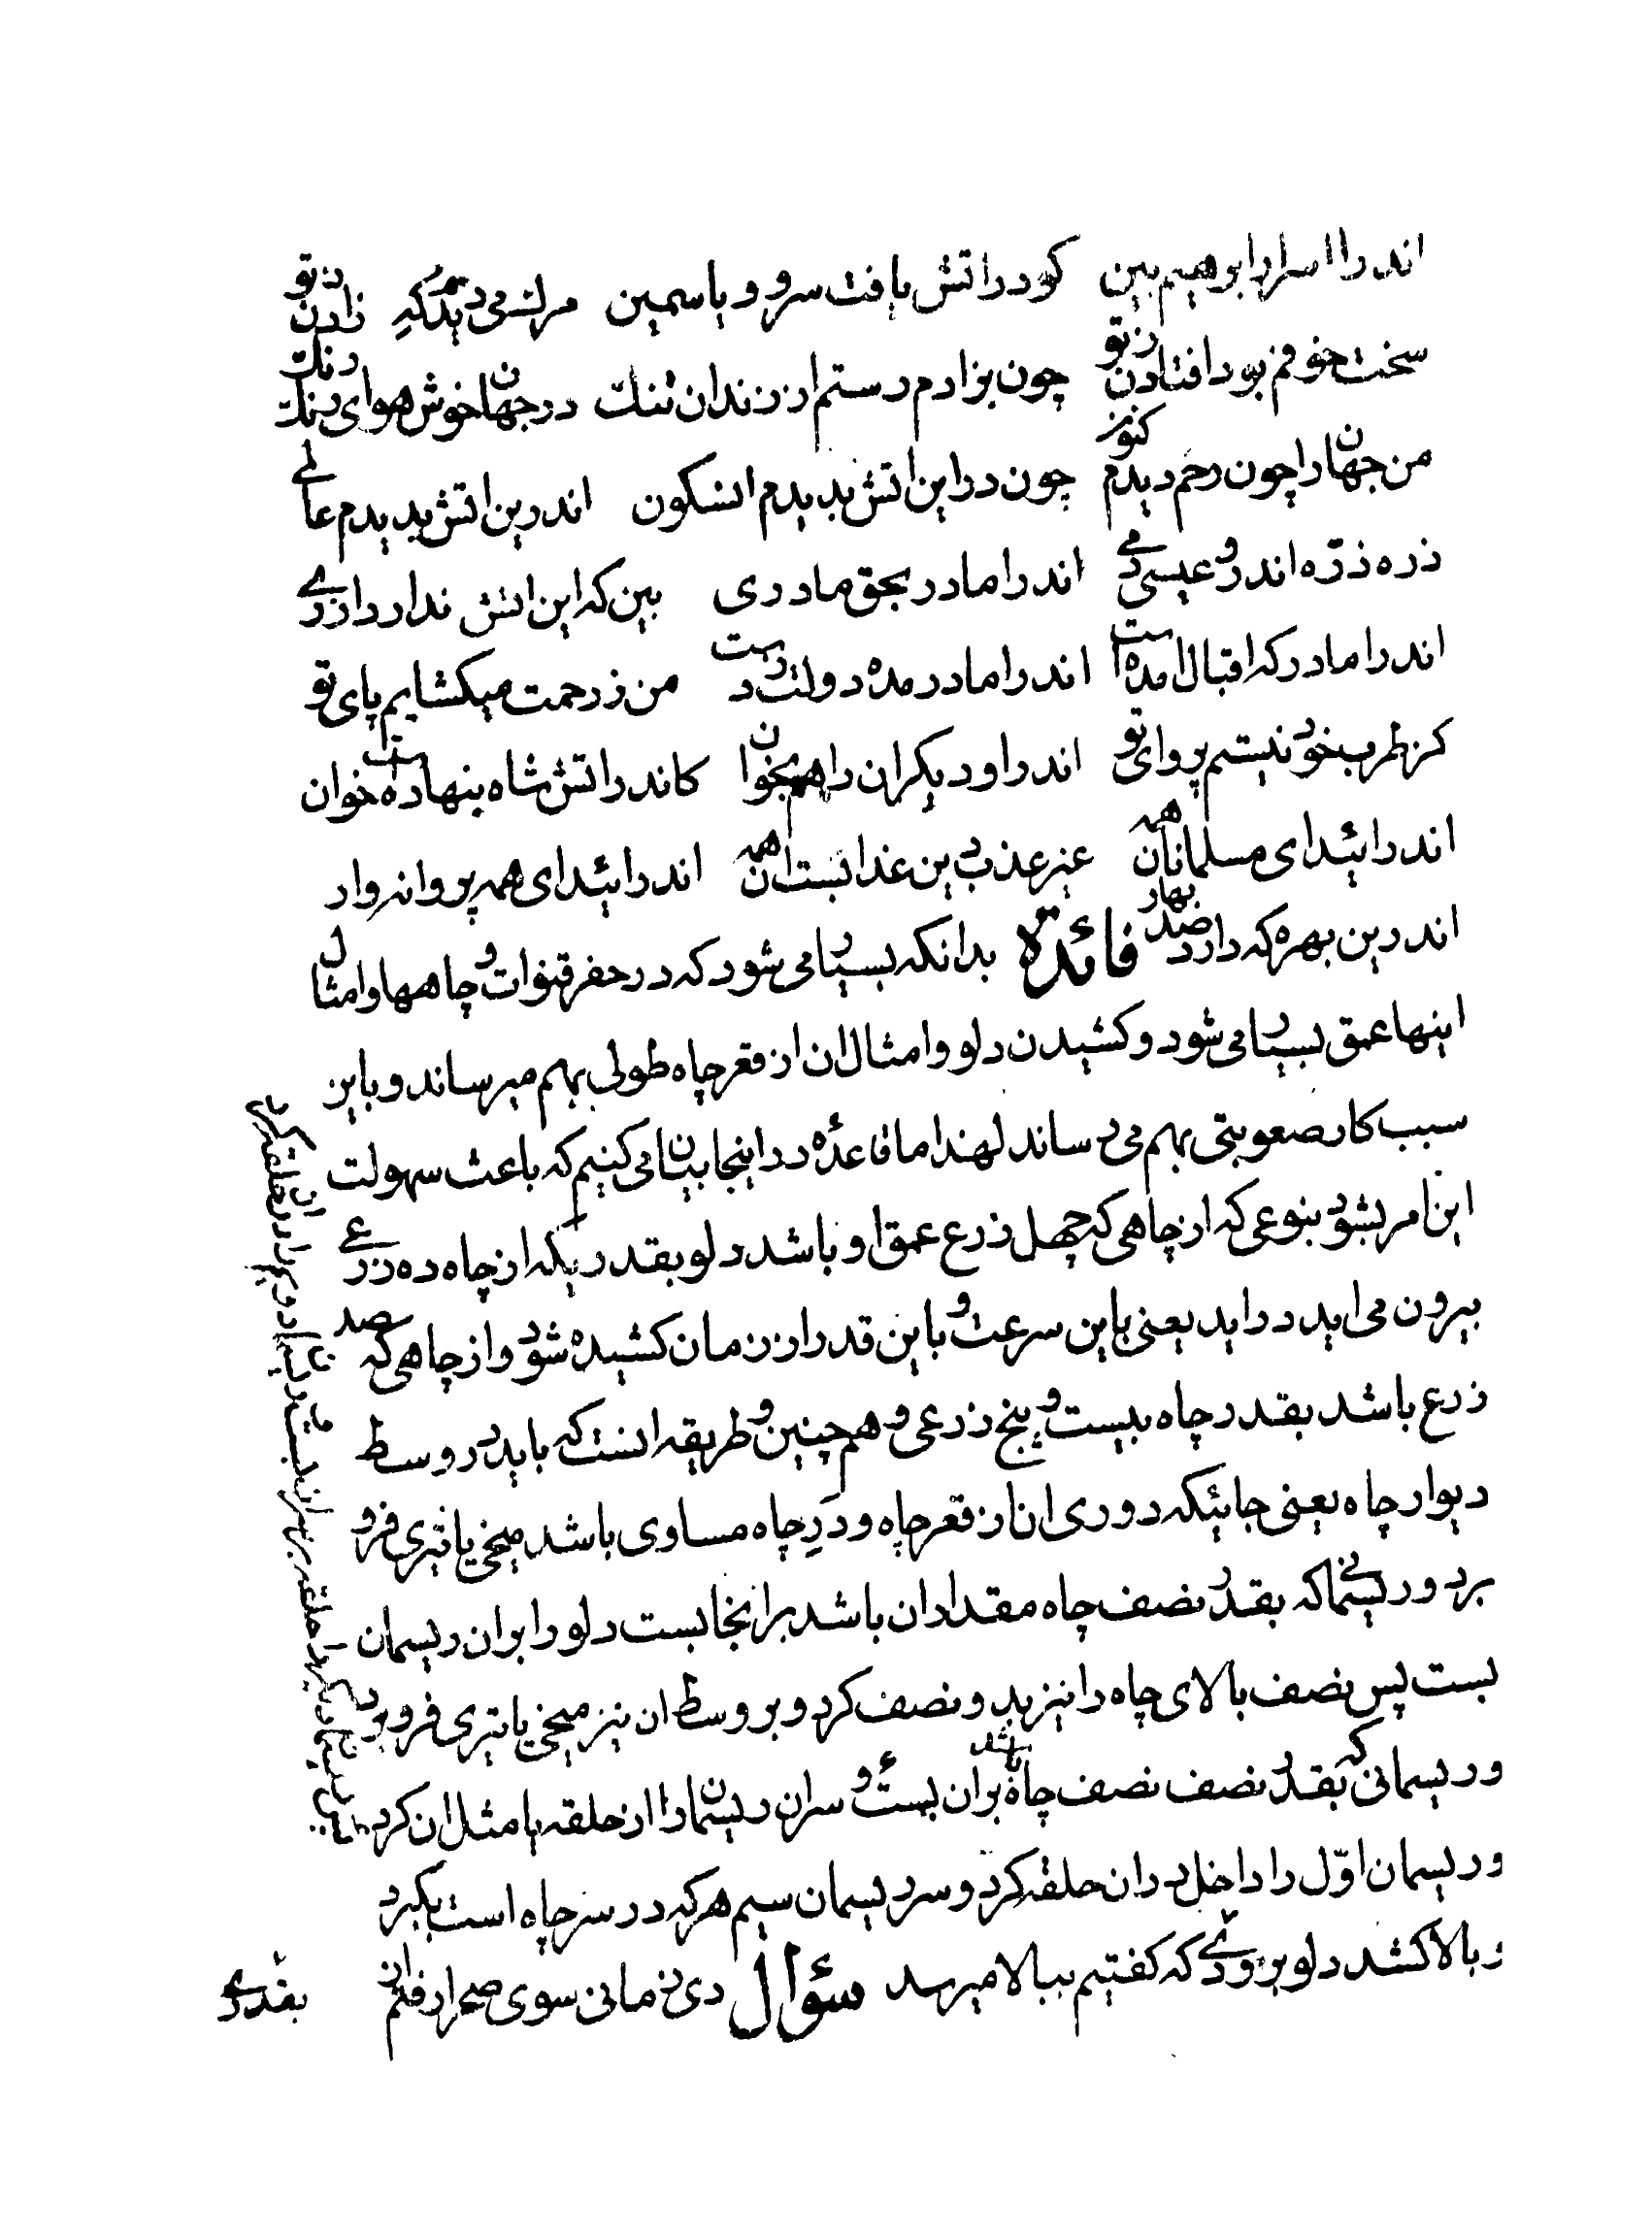 اندرا اسرار ابرهیم بین کو در اتش یافت سرو و یاسمین مرگ می دیدم گه زادن ز تو
سخت خوفم بود افتادن ز تو چون بزادم رستم از زندان تنك در جهان خوش هوای رنك رنك
من جهان را چون رحم دیدم کنون چون در این اتش بدیدم این سکون اندرین اتش بدیدم عالمی
ذره ذرّه اندرو عیسی دمی اندرا مادر بحق مادری بین که این اتش ندارد ازری
اندرا مادر که اقبال امده است اندرا مادر مده دولت ز دست من ز رحمت میکشایم پای تو
کز طرب خود نیستم پروای تو اندرا و دیکران را هم بخوان کاندر اتش شاه بنهاده است خوان
اندرائید ای مسلمانان همه غیر عذب دین عذابست ان همه اندرائید ای همه پروانه وار
اندرین بهره که دارد صد بهار فائدة بدانکه بسیار می شود که در حفر قنوات و چاهها و امثال
اینها عمق بسیار می شود و کشیدن دلو و امثال ان از قعر چاه طولی بهم میرساند و باین
سبب کار صعوبتی بهم می رساند لهذا ما قاعدهٔ در اینجا بیان می کنیم که باعث سهولت
این امر بشود بنوعی که از چاهی که چهل ذرع عمق او باشد دلو بقدریکه از چاه ده ذرعی
بیرون می اید در اید یعنی باین سرعت و باین قدر از زمان کشیده شود و از چاهی که صد
ذرع باشد بقدر چاه بیست و پنج ذرعی و هم چنین و طریقه انست که باید در وسط
دیوار چاه یعنی جائیکه دوری ان از قعر چاه و درِ چاه مساوی باشد میخی یا تیری فرو
برد و ریسمانی که بقدر نصف چاه مقدار ان باشد بر انجا بست دلو را بران ریسمان
بست پس نصف بالای چاه را نیز بدو نصف کرد و بر وسط ان نیز میخی یا تیری فرو برد
و ریسمانی که بقدر نصف نصف چاه باشد بران بست و سر ان ریسمان را از حلقه یا مثل ان کرد
و ریسمان اوّل را داخل در ان حلقه کرد و سر ریسمان سیم هر که در سر چاه است بگیرد
و بالا کشد دلو بزودی که کفتیم ببالا میرسد سؤال دی زمانی سوی صحرا رفتم از ان
بقدری